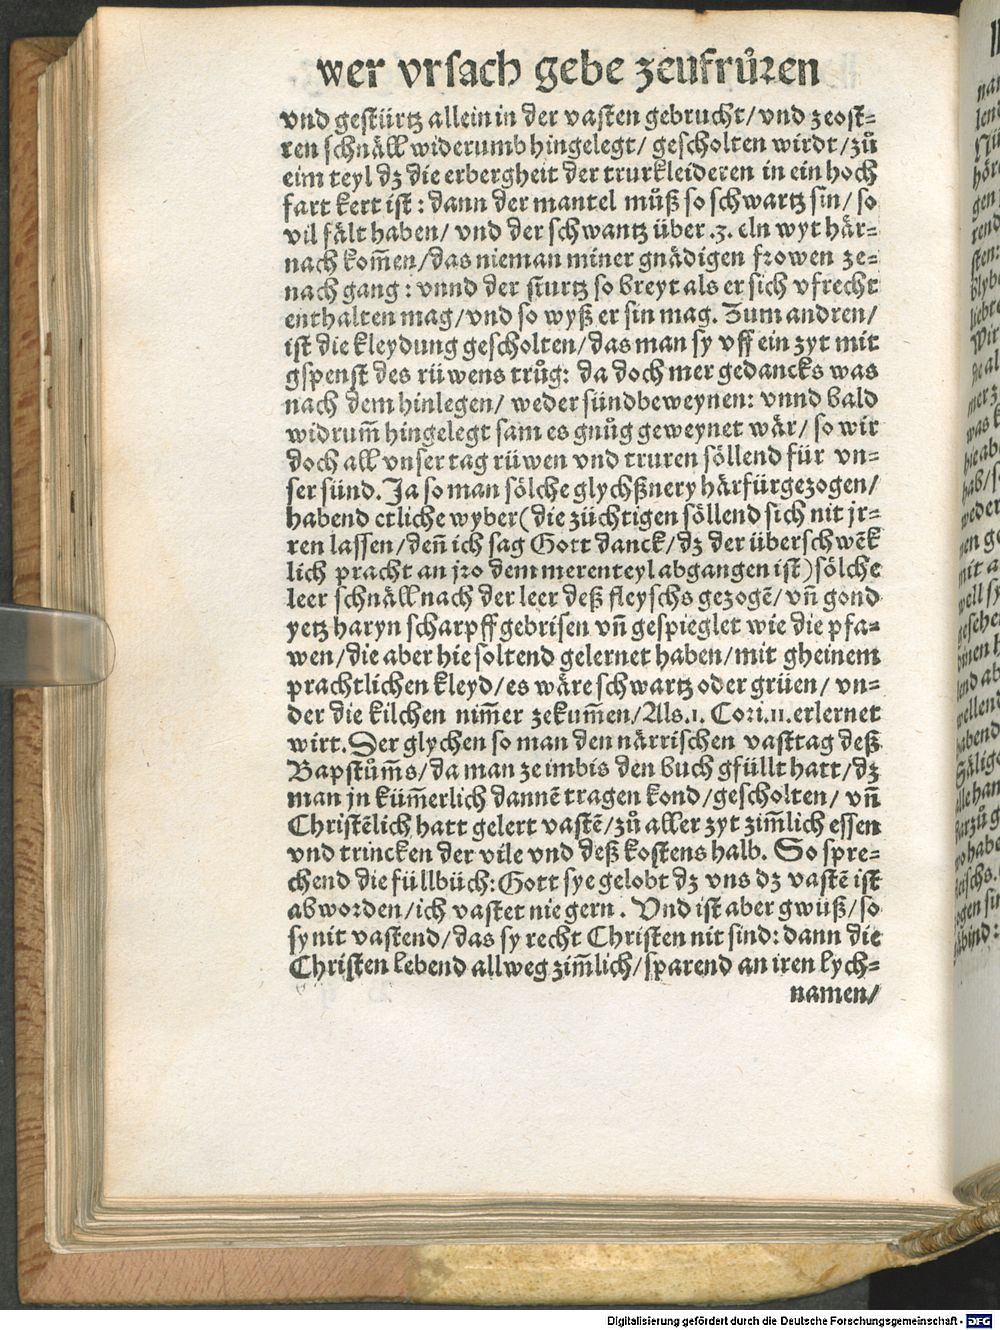 wer vrsach gebe zeufrůren
vnd gestürtz allein in der vasten gebrucht/vnd zeost=
ren schnäll widerumb hingelegt/ gescholten wirdt/zů
eim teyl dz die erbergheit der trurkleideren in ein hoch
fart kert ist: dann der mantel můß so schwartz sin/ so
vil fält haben/ vnd der schwantz über .3. eln wyt här=
nach kom̄en/das nieman miner gnädigen frowen ze=
nach gang: vnnd der sturtz so breyt als er sich vfrecht
enthalten mag/vnd so wyß er sin mag. Zum andren/
ist die kleydung gescholten/das man sy vff ein zyt mit
gspenst des rüwens trůg: da doch mer gedancks was
nach dem hinlegen/ weder sündbeweynen: vnnd bald
widrum̄ hingelegt sam es gnůg geweynet wär/ so wir
doch all vnser tag rüwen vnd truren söllend für vn=
ser sünd. Ja so man sölche glychßnery härfürgezogen/
habend etliche wyber(die züchtigen söllend sich nit jr=
ren lassen/den̄ ich sag Gott danck/dz der überschwēk
lich pracht an jro dem merenteyl abgangen ist)sölche
leer schnäll nach der leer deß fleyschs gezogē/ vn̄ gond
yetz haryn scharpff gebrisen vn̄ gespieglet wie die pfa=
wen/die aber hie soltend gelernet haben/mit gheinem
prachtlichen kleyd/es wäre schwartz oder grüen/ vn=
der die kilchen nim̄er zekum̄en/Als.1. Cori.11.erlernet
wirt. Der glychen so man den närrischen vasttag deß
Bapstům̄s/da man ze imbis den buch gfüllt hatt/dz
man jn küm̄erlich dannē tragen kond/gescholten/ vn̄
Christēlich hatt gelert vastē/zů aller zyt zim̄lich essen
vnd trincken der vile vnd deß kostens halb. So spre=
chend die füllbüch:Gott sye gelobt dz vns dz vastē ist
ab worden/ich vastet nie gern. Vnd ist aber gwüß/so
sy nit vastend/das sy recht Christen nit sind: dann die
Christen lebend allweg zim̄lich/sparend an iren lych=
namen/
Digitalisierung gefördert durch die Deutsche Forschungsgemeinschaft - DFG